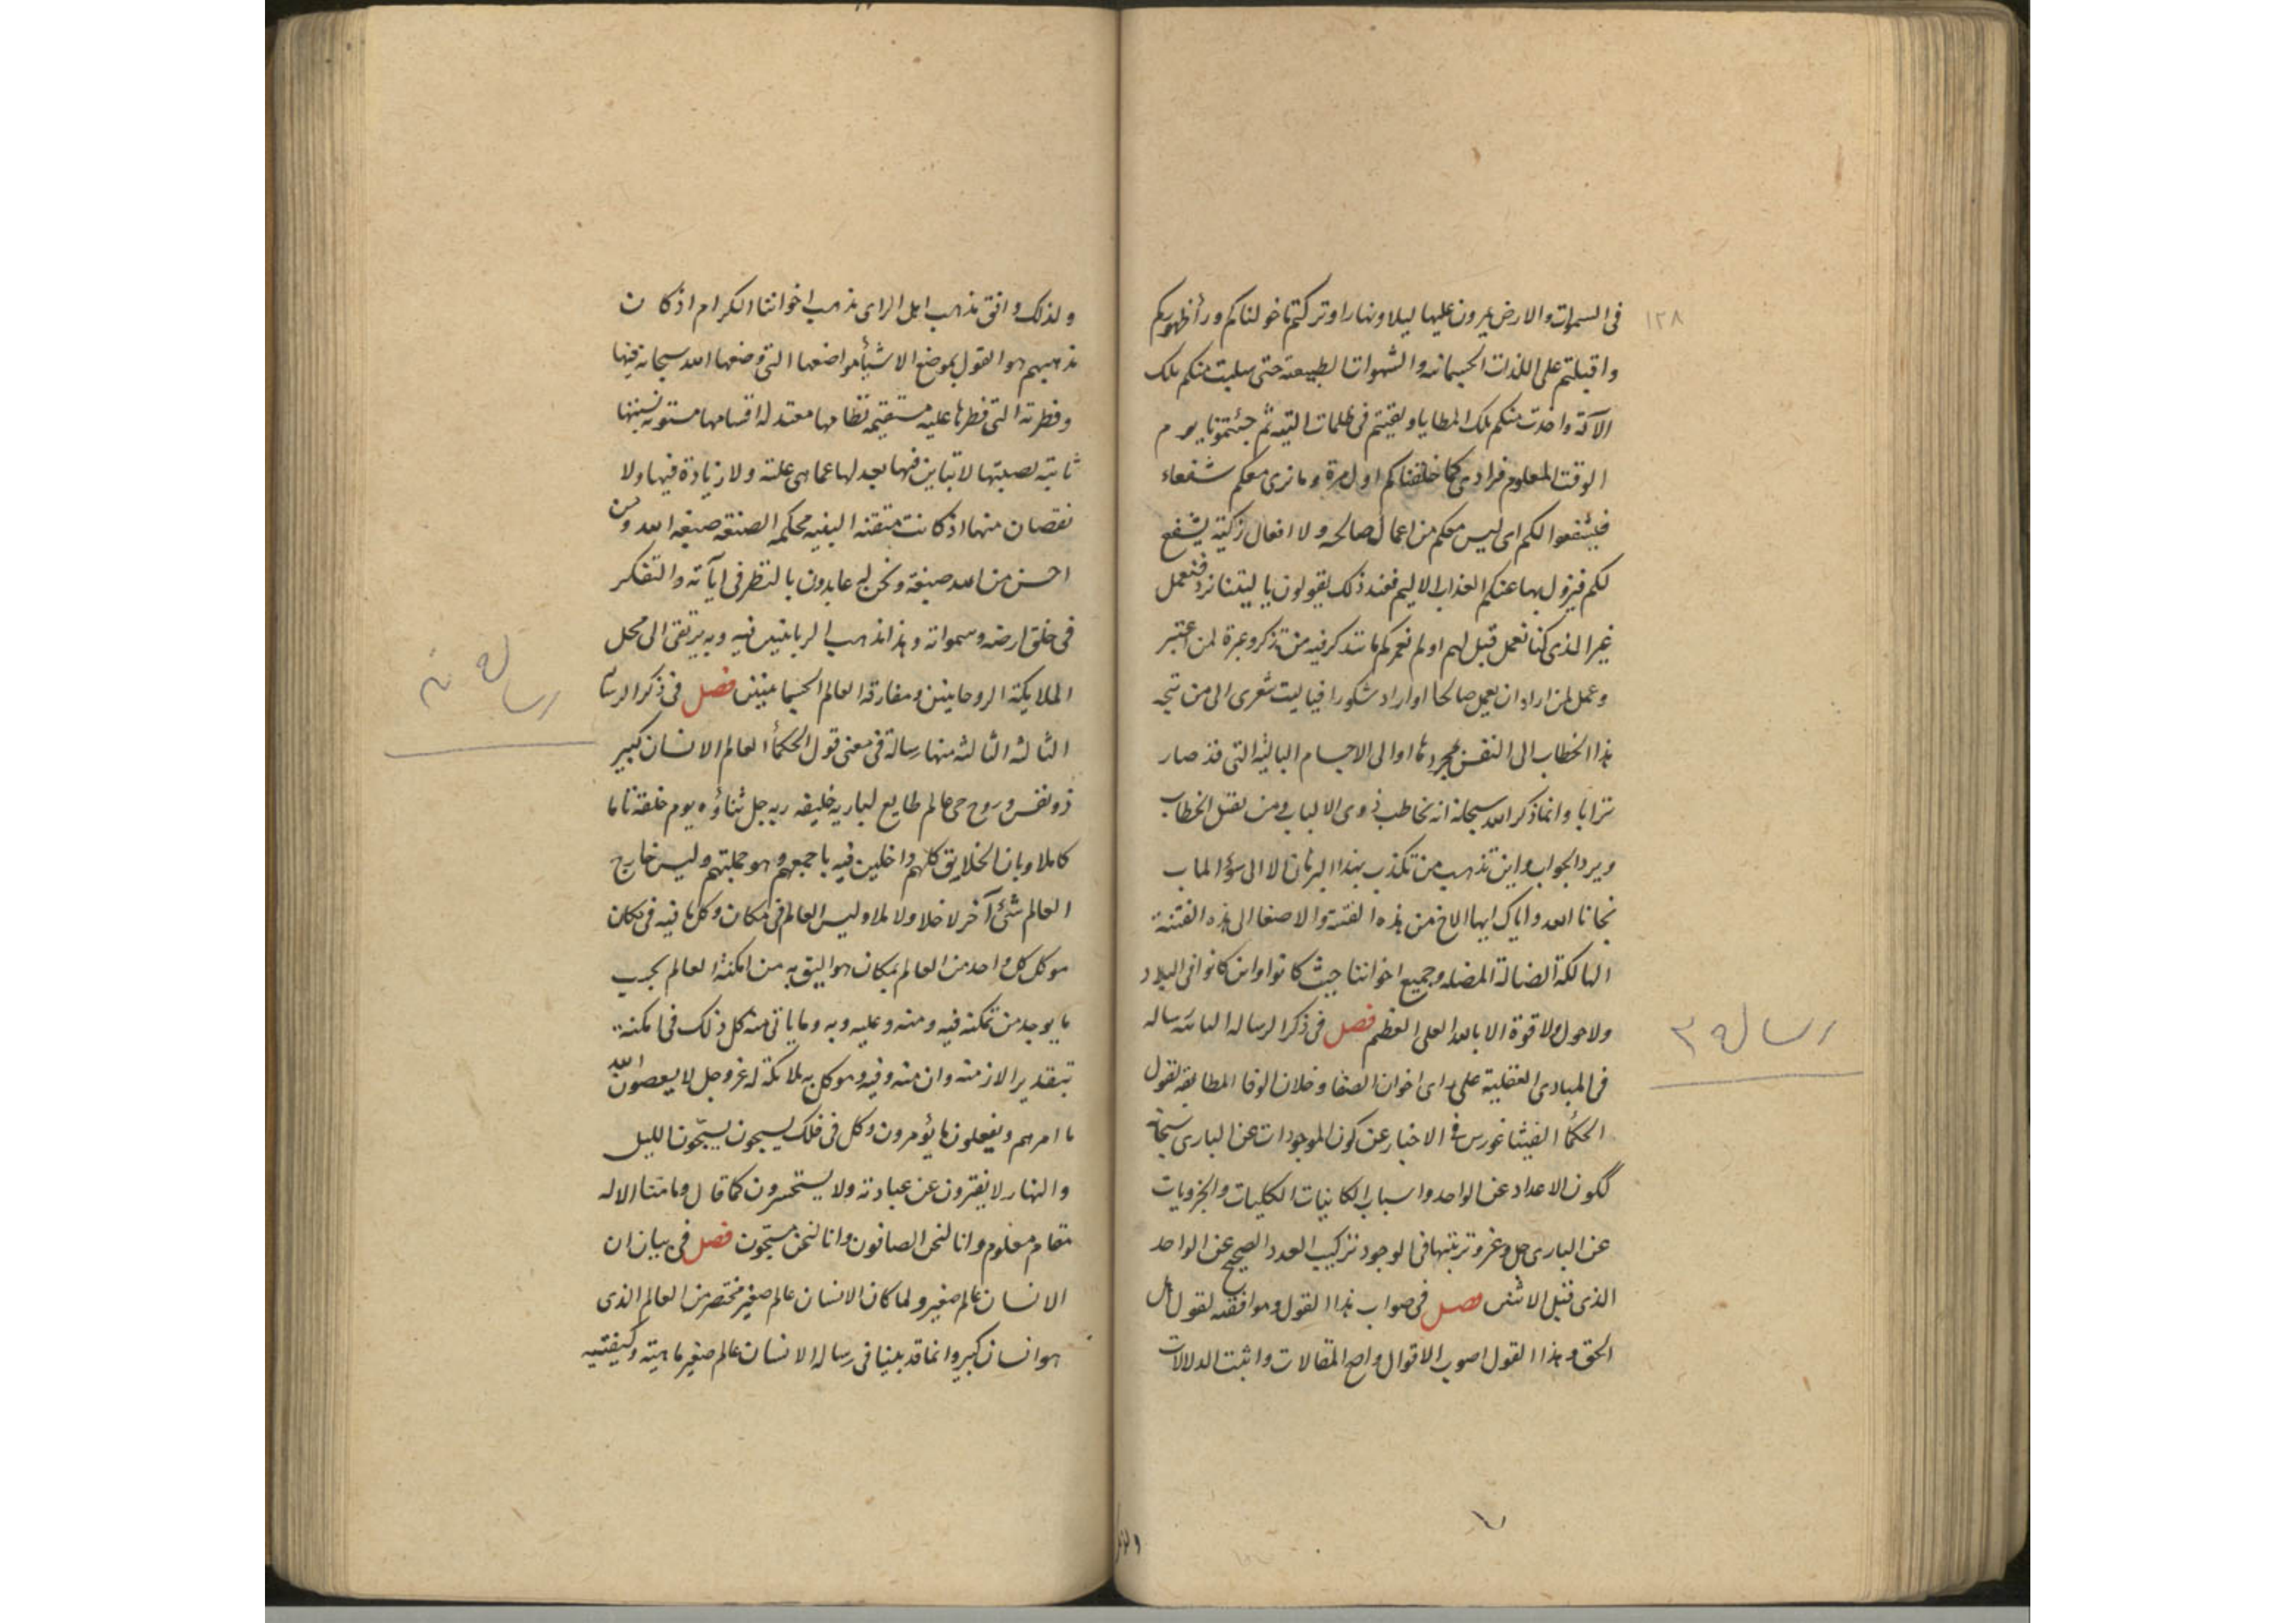 ١٢٨
فى السموات والارض يمرون عليها ليلا ونهارا وتركتم ما خولناكم ورأ ظهوركم
واقبلتم على اللذات الجسمانيه والشهوات الطبيعة حتى سلبت منكم تلك
الآلة واخذت منكم تلك المطايا وبقيتم فى ظلمات التيه ثم جئتمونا يوم
الوقت المعلوم فرادى كما خلقناكم اول مرة وما نرى معكم شفعاء
فيشفعوا لكم اى ليس معكم من اعمال صالحه ولا افعال زكية يشفع
لكم فيزول بها عنكم العذاب الاليم فعند ذلك يقولون يا ليتنا نرد فنعمل
غير الذى كنا نعمل قيل لهم اولم نعمركم ما يتذكر فيه من تذكر وعبرة لمن اعتبر
وعمل لمن اراد ان يعمل صالحا او اراد شكورا فياليت شعرى الى من يتجه
هذا الخطاب الى النفس بمجردها او الى الاجسام البالية التى قد صار
ترابا وانما ذكر الله سبحانه انه يخاطب ذوى الالباب ومن يعقل الخطاب
ويرد الجواب واين تذهب من تكذب بهذا البرهان لا الى سؤ الماب
نجانا الله واياك ايها الاخ من هذه الفتنة والاصغا الى هذه الفتنة
الهالكة الضالة المضله وجميع اخواننا حيث كانوا واين كانوا فى البلاد
ولا حول ولا قوة الا بالله العلى العظيم فصل فى ذكر الرساله الثانيه رساله
فى المبادى العقلية على راى اخوان الصفا وخلان الوفا المطابقه لقول
الحكمأ الفيثاغورس فى الاخبار عن كون الموجودات عن البارى سبحانه
ككون الاعداد عن الواحد واسباب الكاينات الكليات والجزويات
عن البارى جل وعز وترتبها فى الوجود تركيب العدد الصحيح عن الواحد
الذى قبل الاثنين فصل فى صواب هذا القول وموافقته لقول اهل
الحق وهذا القول اصوب الاقوال واصح المقالات واثبت الدلالات
رساله ٢
ولذلك وافق مذهب اهل الراى مذهب اخواننا الكرام اذ كان
مذهبهم هو القول بموضع الاشيأ مواضعها التى وضعها الله سبحانه فيها
وفطرته التى فطرها عليه مستقيمة نظامها معتدله اقسامها مستوية نسبتها
ثابتة نصبتها لا تباين فيها يعدلها عما هى عليه ولا زيادة فيها ولا
نقصان منها اذ كانت متقنه البنيه محكمه الصنعه صبغه الله ومن
احسن من الله صبغة ونحن له عابدون بالنظر فى اياته والتفكر
فى خلق ارضه وسمواته وهذا مذهب الربانيين فيه وبه يرتقى الى محل
الملايكة الروحانيين ومفارقه العالم الجسمانيين فصل فى ذكر الرساله
الثالثه الثالثه منها رسالة فى معنى قول الحكمأ العالم الانسان كبير
ذو نفس وروح حى عالم طايع لباريه خليفه ربه جل ثناؤه يوم خلقه تاما
كاملا وبان الخلايق كلهم داخلين فيه باجمعهم وهو جملتهم وليس خارج
العالم شئ آخر لا خلا ولا ملا وليس العالم فى مكان وكل ما فيه فى مكان
موكل كل واحد من العالم بمكان هو اليق به من امكنة العالم بحسب
ما يوجد من تمكنه فيه ومنه وعليه وبه وما ياتى منه كل ذلك فى امكنة
بتقدير الازمنه وان منه وفيه وموكل به ملائكة له عز وجل لا يعصون الله
ما امرهم ويفعلون ما يؤمرون وكل فى فلك يسبحون يسبحون الليل
والنهار لا يفترون عن عبادته ولا يستحسرون كما قال وما منا الا له
مقام معلوم وانا لنحن الصافون وانا لنحن مسبحون فصل فى بيان ان
الانسان عالم صغير ولما كان الانسان عالم صغير مختصر من العالم الذى
هو انسان كبير وانما قد بينا فى رساله الانسان عالم صغير ماهيته وكيفيته
رساله